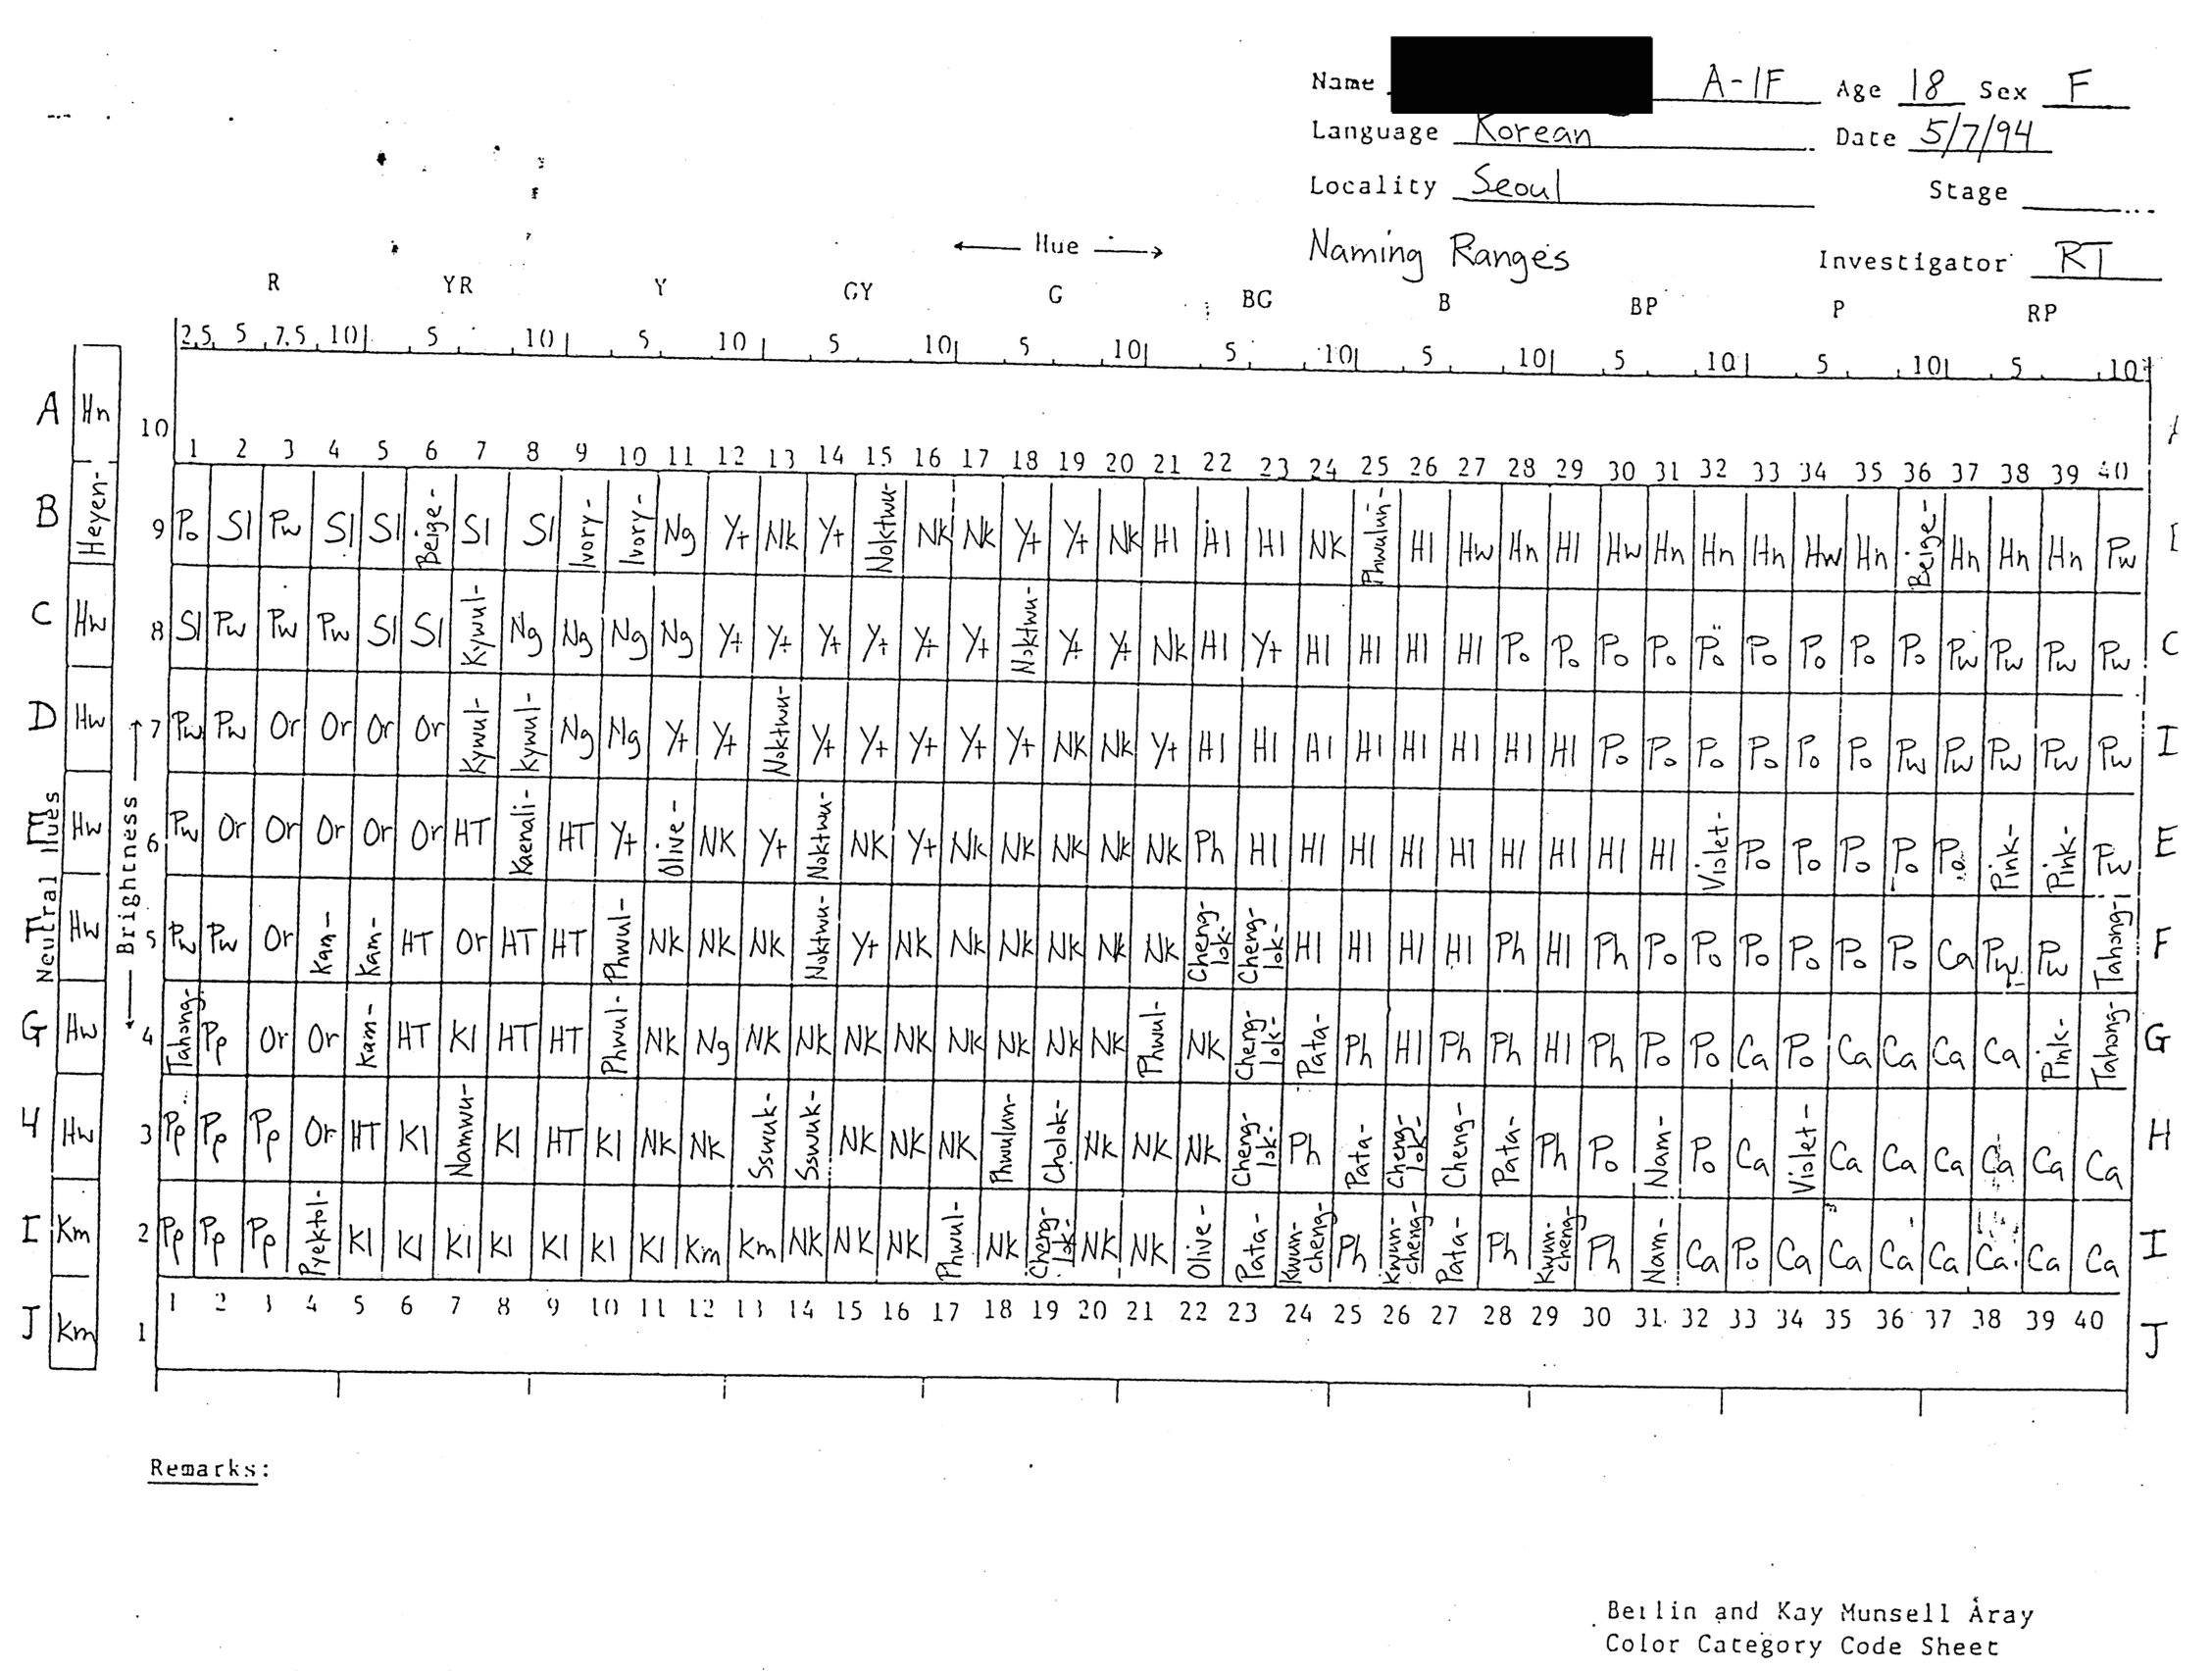 Name A-1F Age 18 Sex F
Language Korean Date 5/7/94
Locality Seoul Stage
Naming Ranges Investigator RT
← Hue →
R YR Y GY G BG B BP P RP
2.5 5 7.5 10 5 10 5 10 5 10 5 10 5 10 5 10 5 10 5 10 5 10
A Hn 10
1 2 3 4 5 6 7 8 9 10 11 12 13 14 15 16 17 18 19 20 21 22 23 24 25 26 27 28 29 30 31 32 33 34 35 36 37 38 39 40
B Heyen- 9 Po Sl Pw Sl Sl Beige- Sl Sl Ivory- Ivory- Ng Yt Nk Yt Noktwu- Nk Nk Yt Yt Nk Hl Hl Hl NK Phwulun- Hl Hw Hn Hl Hw Hn Hn Hn Hw Hn Beige- Hn Hn Hn Pw
C Hw 8 Sl Pw Pw Pw Sl Sl Kywul- Ng Ng Ng Ng Yt Yt Yt Yt Yt Yt Noktwu- Yt Yt Nk Hl Yt Hl Hl Hl Hl Po Po Po Po Po Po Po Po Po Pw Pw Pw Pw C
D Hw 7 Pw Pw Or Or Or Or Kywul- Kywul- Ng Ng Yt Yt Noktwu- Yt Yt Yt Yt Yt NK Nk Yt Hl Hl Hl Hl Hl Hl Hl Hl Po Po Po Po Po Po Pw Pw Pw Pw Pw
E Hw 6 Pw Or Or Or Or Or HT Kaenali- HT Yt Olive- NK Yt Noktwu- NK Yt Nk Nk Nk Nk Nk Ph Hl Hl Hl Hl Hl Hl Hl Hl Hl Violet- Po Po Po Po Po Pink- Pink- Pw E
F Hw 5 Pw Pw Or Kam- Kam- HT Or HT HT Phwul- NK NK NK Noktwu- Yt NK Nk Nk Nk Nk Nk Cheng-lok- Cheng-lok- Hl Hl Hl Hl Ph Hl Ph Po Po Po Po Po Po Ca Pw Pw Tahong- F
G Hw 4 Tahong- Pp Or Or Kam- HT Kl HT HT Phwul- NK Ng NK NK NK NK Nk Nk Nk Nk Phwul- NK Cheng-lok- Pata- Ph Hl Ph Ph Hl Ph Po Po Ca Po Ca Ca Ca Ca Pink- Tahong- G
H Hw 3 Pp Pp Pp Or HT Kl Namwu- Kl HT Kl NK Nk Sswuk- Sswuk- NK NK NK Phwulun- Cholok- Nk NK NK Cheng-lok- Ph Pata- Cheng-lok- Cheng- Pata- Ph Po Nam- Po Ca Violet- Ca Ca Ca Ca Ca Ca H
I Km 2 Pp Pp Pp Pyektol- Kl Kl Kl Kl Kl Kl Kl Km Km NK NK NK Phwul- NK Cheng-lok- NK NK Olive- Pata- Kwun-cheng- Ph Kwun-cheng- Pata- Ph Kwun-cheng- Ph Nam- Ca Po Ca Ca Ca Ca Ca Ca Ca I
J Km 1 J
1 2 3 4 5 6 7 8 9 10 11 12 13 14 15 16 17 18 19 20 21 22 23 24 25 26 27 28 29 30 31 32 33 34 35 36 37 38 39 40
Neutral Hues
← Brightness →
Remarks:
Berlin and Kay Munsell Aray
Color Category Code Sheet